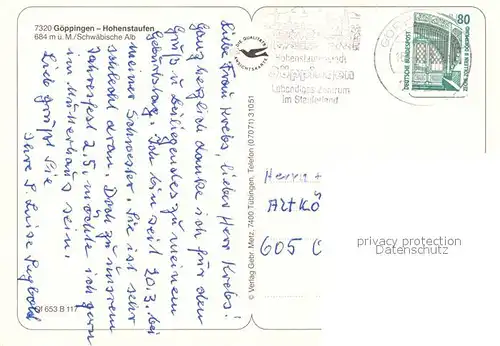 7320 Göppingen - Hohenstaufen
684 m ü. M./Schwäbische Alb
Liebe Frau Krebs, lieber Herr Krebs!
Ganz herzlich danke ich für den
Gruß u. beiliegendes zu meinem
Geburtstag. Ich bin seit 20.3. bei
meiner Schwester. Sie ist sehr
schlecht dran. Doch zu unserem
Jahresfest 2.5. möchte ich gern
im Mutterhaus sein.
Lieb grüßt Sie
Ihre S. Luise
653 B 117
DIE QUALITÄTS
ANSICHTSKARTE
© Verlag Gebr. Metz, 7400 Tübingen, Telefon (07071) 31051
Lebendiges Zentrum
im Stauferland
80
DEUTSCHE BUNDESPOST
ZECHE ZOLLERN II DORTMUND
Herrn +
605
privacy protection
Datenschutz